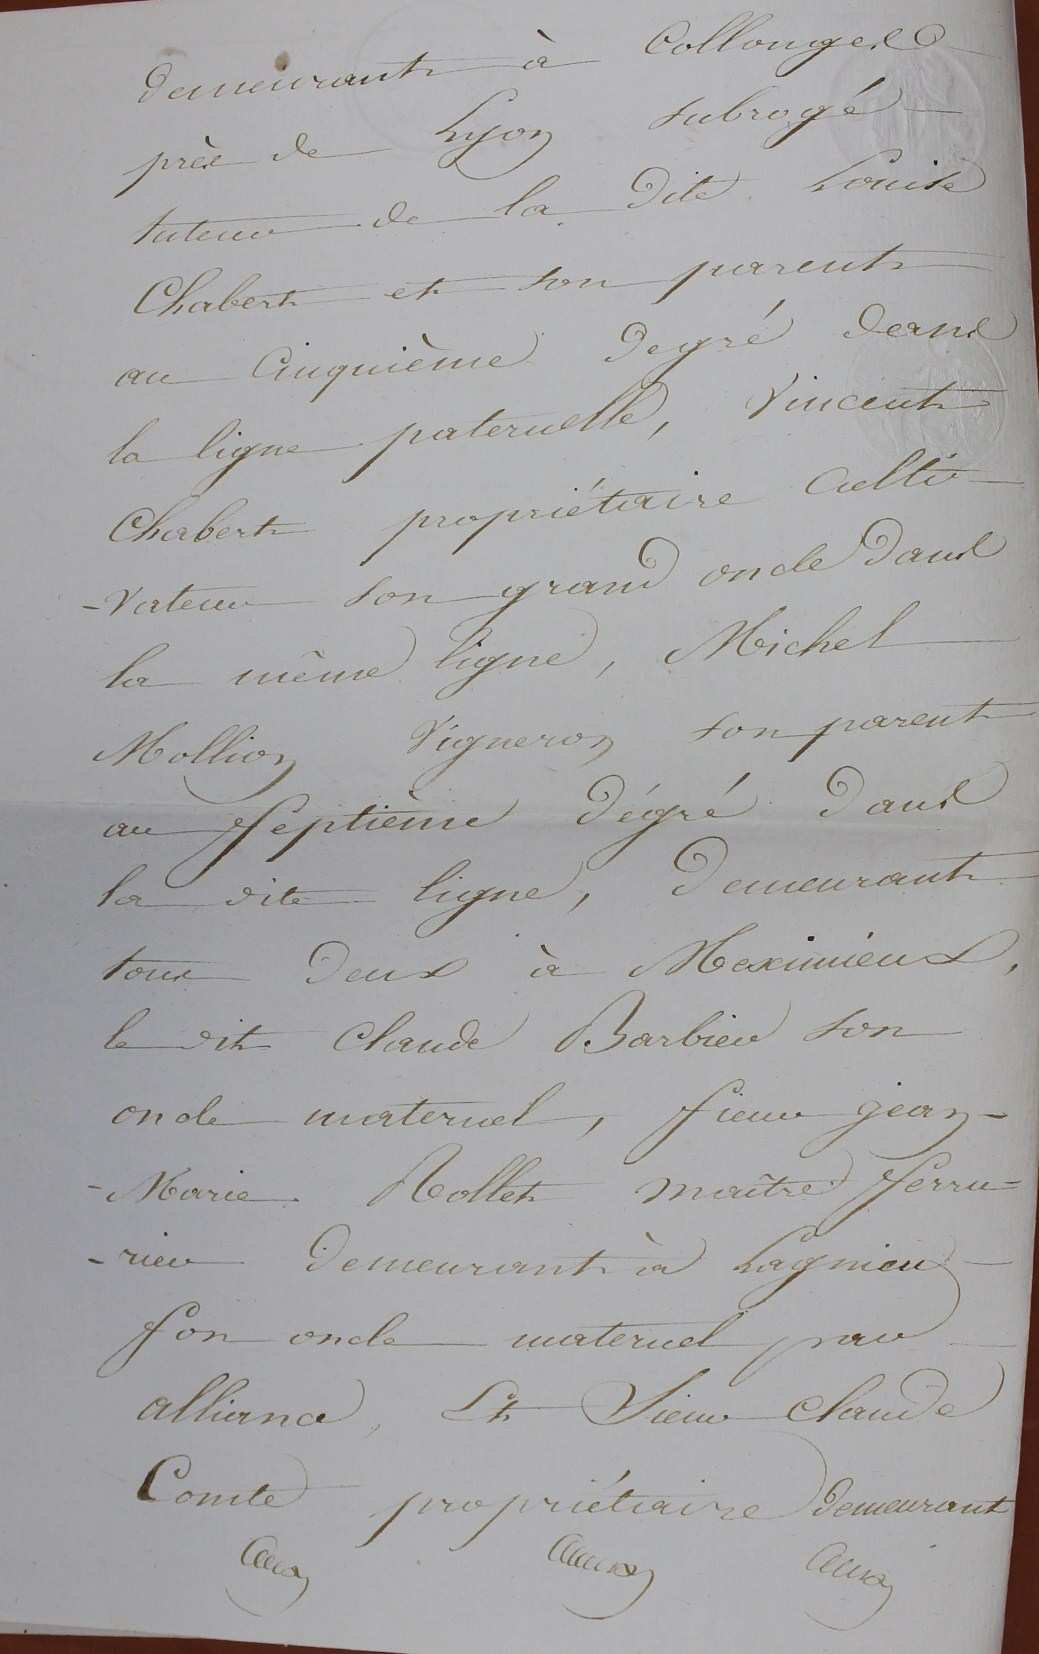 demeurant à Collonges
près de Lyon subrogé
tuteur de la dite Louise
Chabert et son parent
au Cinquième degré dans
la ligne paternelle, Vincent
Chabert propriétaire Culti-
-vateur son grand oncle dans
la même ligne, Michel
Mollion Vigneron son parent
au septième dégré dans
la dite ligne, demeurant
tous deux à Meximieux,
le dit Claude Barbier son
oncle maternel, sieur jean-
-Marie Rollet maître serru-
-rier demeurant à Lagnieu
son oncle maternel par
alliance, Et Sieur Claude
Comte propriétaire demeurant